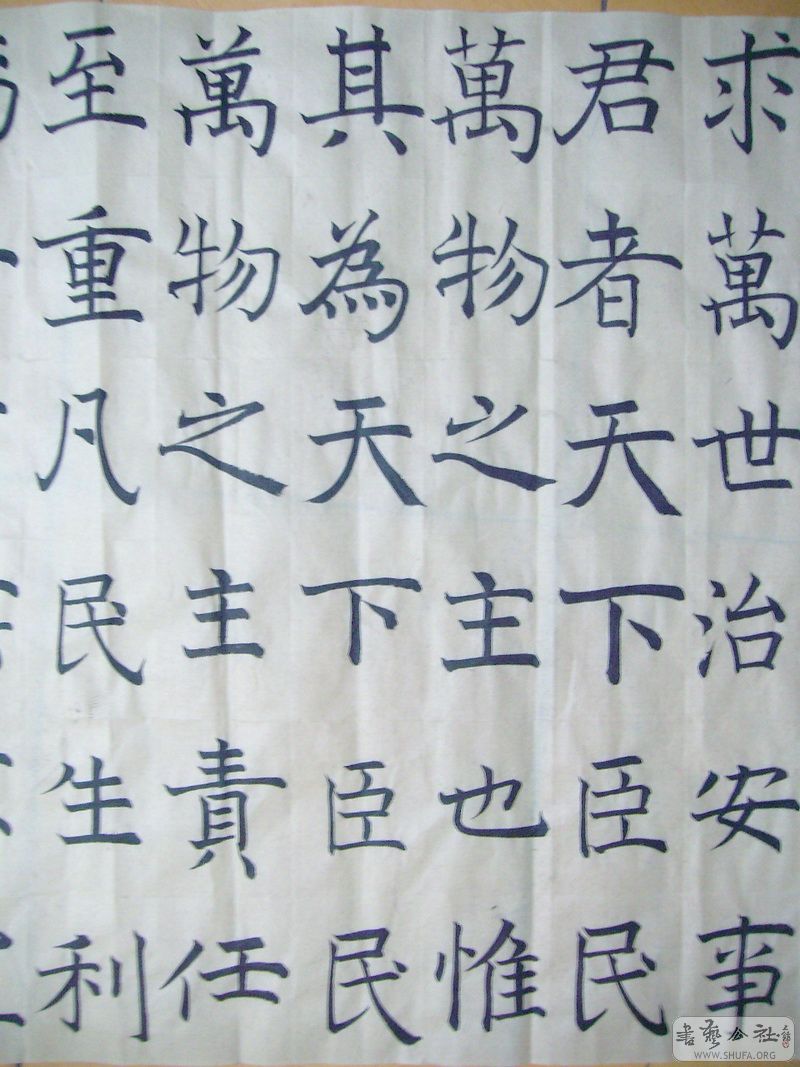 求萬世治安事
君者天下臣民
萬物之主也惟
其為天下臣民
萬物之主責任
至重凡民生利
書藝公社
WWW.SHUFA.ORG